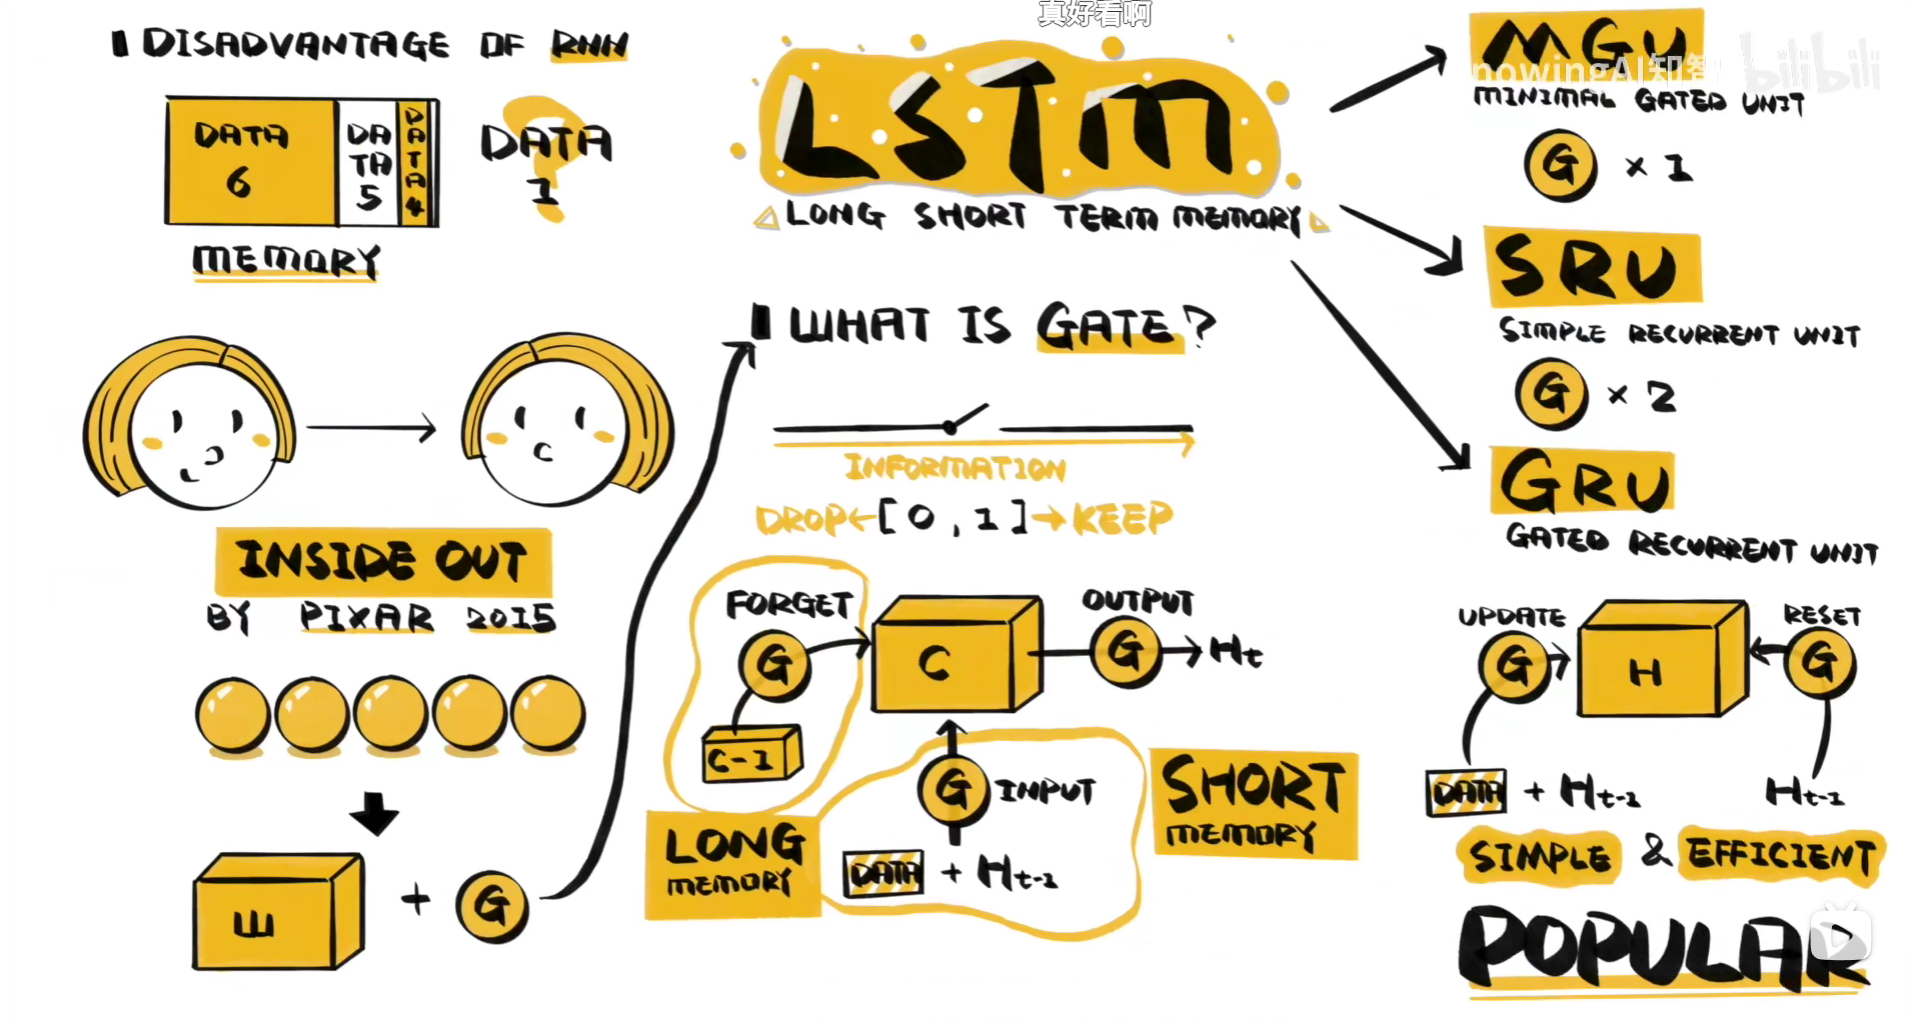 真好看啊
DISADVANTAGE OF RNN
DATA
6
DA
TA
5
DATA4
DATA
1
?
MEMORY
INSIDE OUT
BY PIXAR 2015
W
+
G
LSTM
LONG SHORT TERM MEMORY
WHAT IS GATE?
INFORMATION
DROP←[0,1]→KEEP
FORGET
G
C-1
C
OUTPUT
G
Ht
G INPUT
DATA + Ht-1
LONG
MEMORY
SHORT
MEMORY
MGU
nowingAI知智
bilibili
MINIMAL GATED UNIT
G × 1
SRU
SIMPLE RECURRENT UNIT
G × 2
GRU
GATED RECURRENT UNIT
UPDATE
G
H
RESET
G
DATA + Ht-1
Ht-1
SIMPLE & EFFICIENT
POPULAR